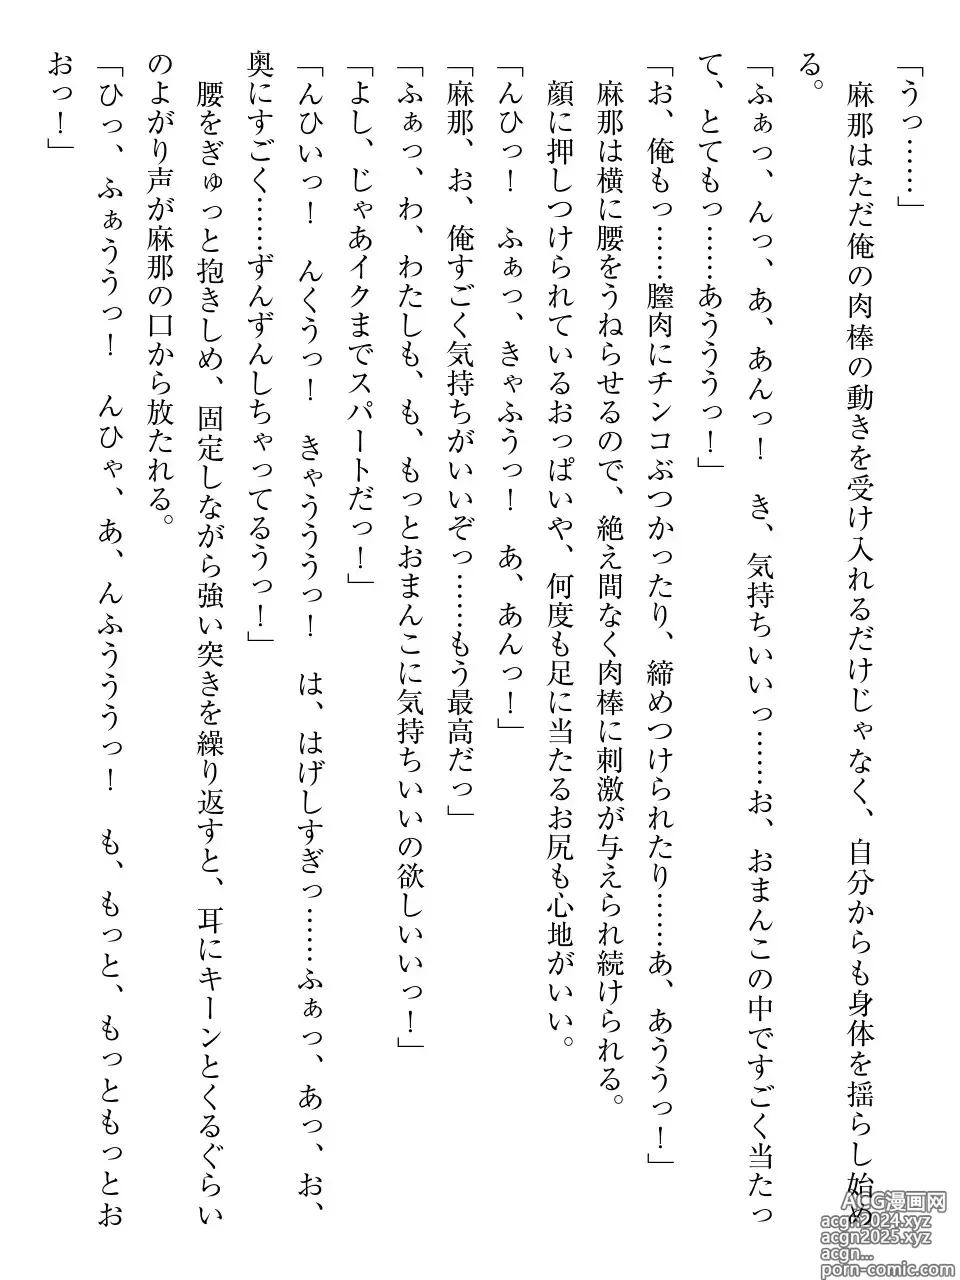 「うっ……」
　麻那はただ俺の肉棒の動きを受け入れるだけじゃなく、自分からも身体を揺らし始め
る。
「ふぁっ、んっ、あ、あんっ！　き、気持ちいいっ……お、おまんこの中ですごく当たっ
て、とてもっ……あううっ！」
「お、俺もっ……膣肉にチンコぶつかったり、締めつけられたり……あ、あううっ！」
　麻那は横に腰をうねらせるので、絶え間なく肉棒に刺激が与えられ続けられる。
　顔に押しつけられているおっぱいや、何度も足に当たるお尻も心地がいい。
「んひっ！　ふぁっ、きゃふうっ！　あ、あんっ！」
「麻那、お、俺すごく気持ちがいいぞっ……もう最高だっ」
「ふぁっ、わ、わたしも、も、もっとおまんこに気持ちいいの欲しいいっ！」
「よし、じゃあイクまでスパートだっ！」
「んひいっ！　んくうっ！　きゃうううっ！　は、はげしすぎっ……ふぁっ、あっ、お、
奥にすごく……ずんずんしちゃってるうっ！」
　腰をぎゅっと抱きしめ、固定しながら強い突きを繰り返すと、耳にキーンとくるぐらい
のよがり声が麻那の口から放たれる。
「ひっ、ふぁううっ！　んひゃ、あ、んふうううっ！　も、もっと、もっともっとお
おっ！」
ACG漫画网
acgn2024.xyz
acgn2025.xyz
acgn...
porn-comic.com